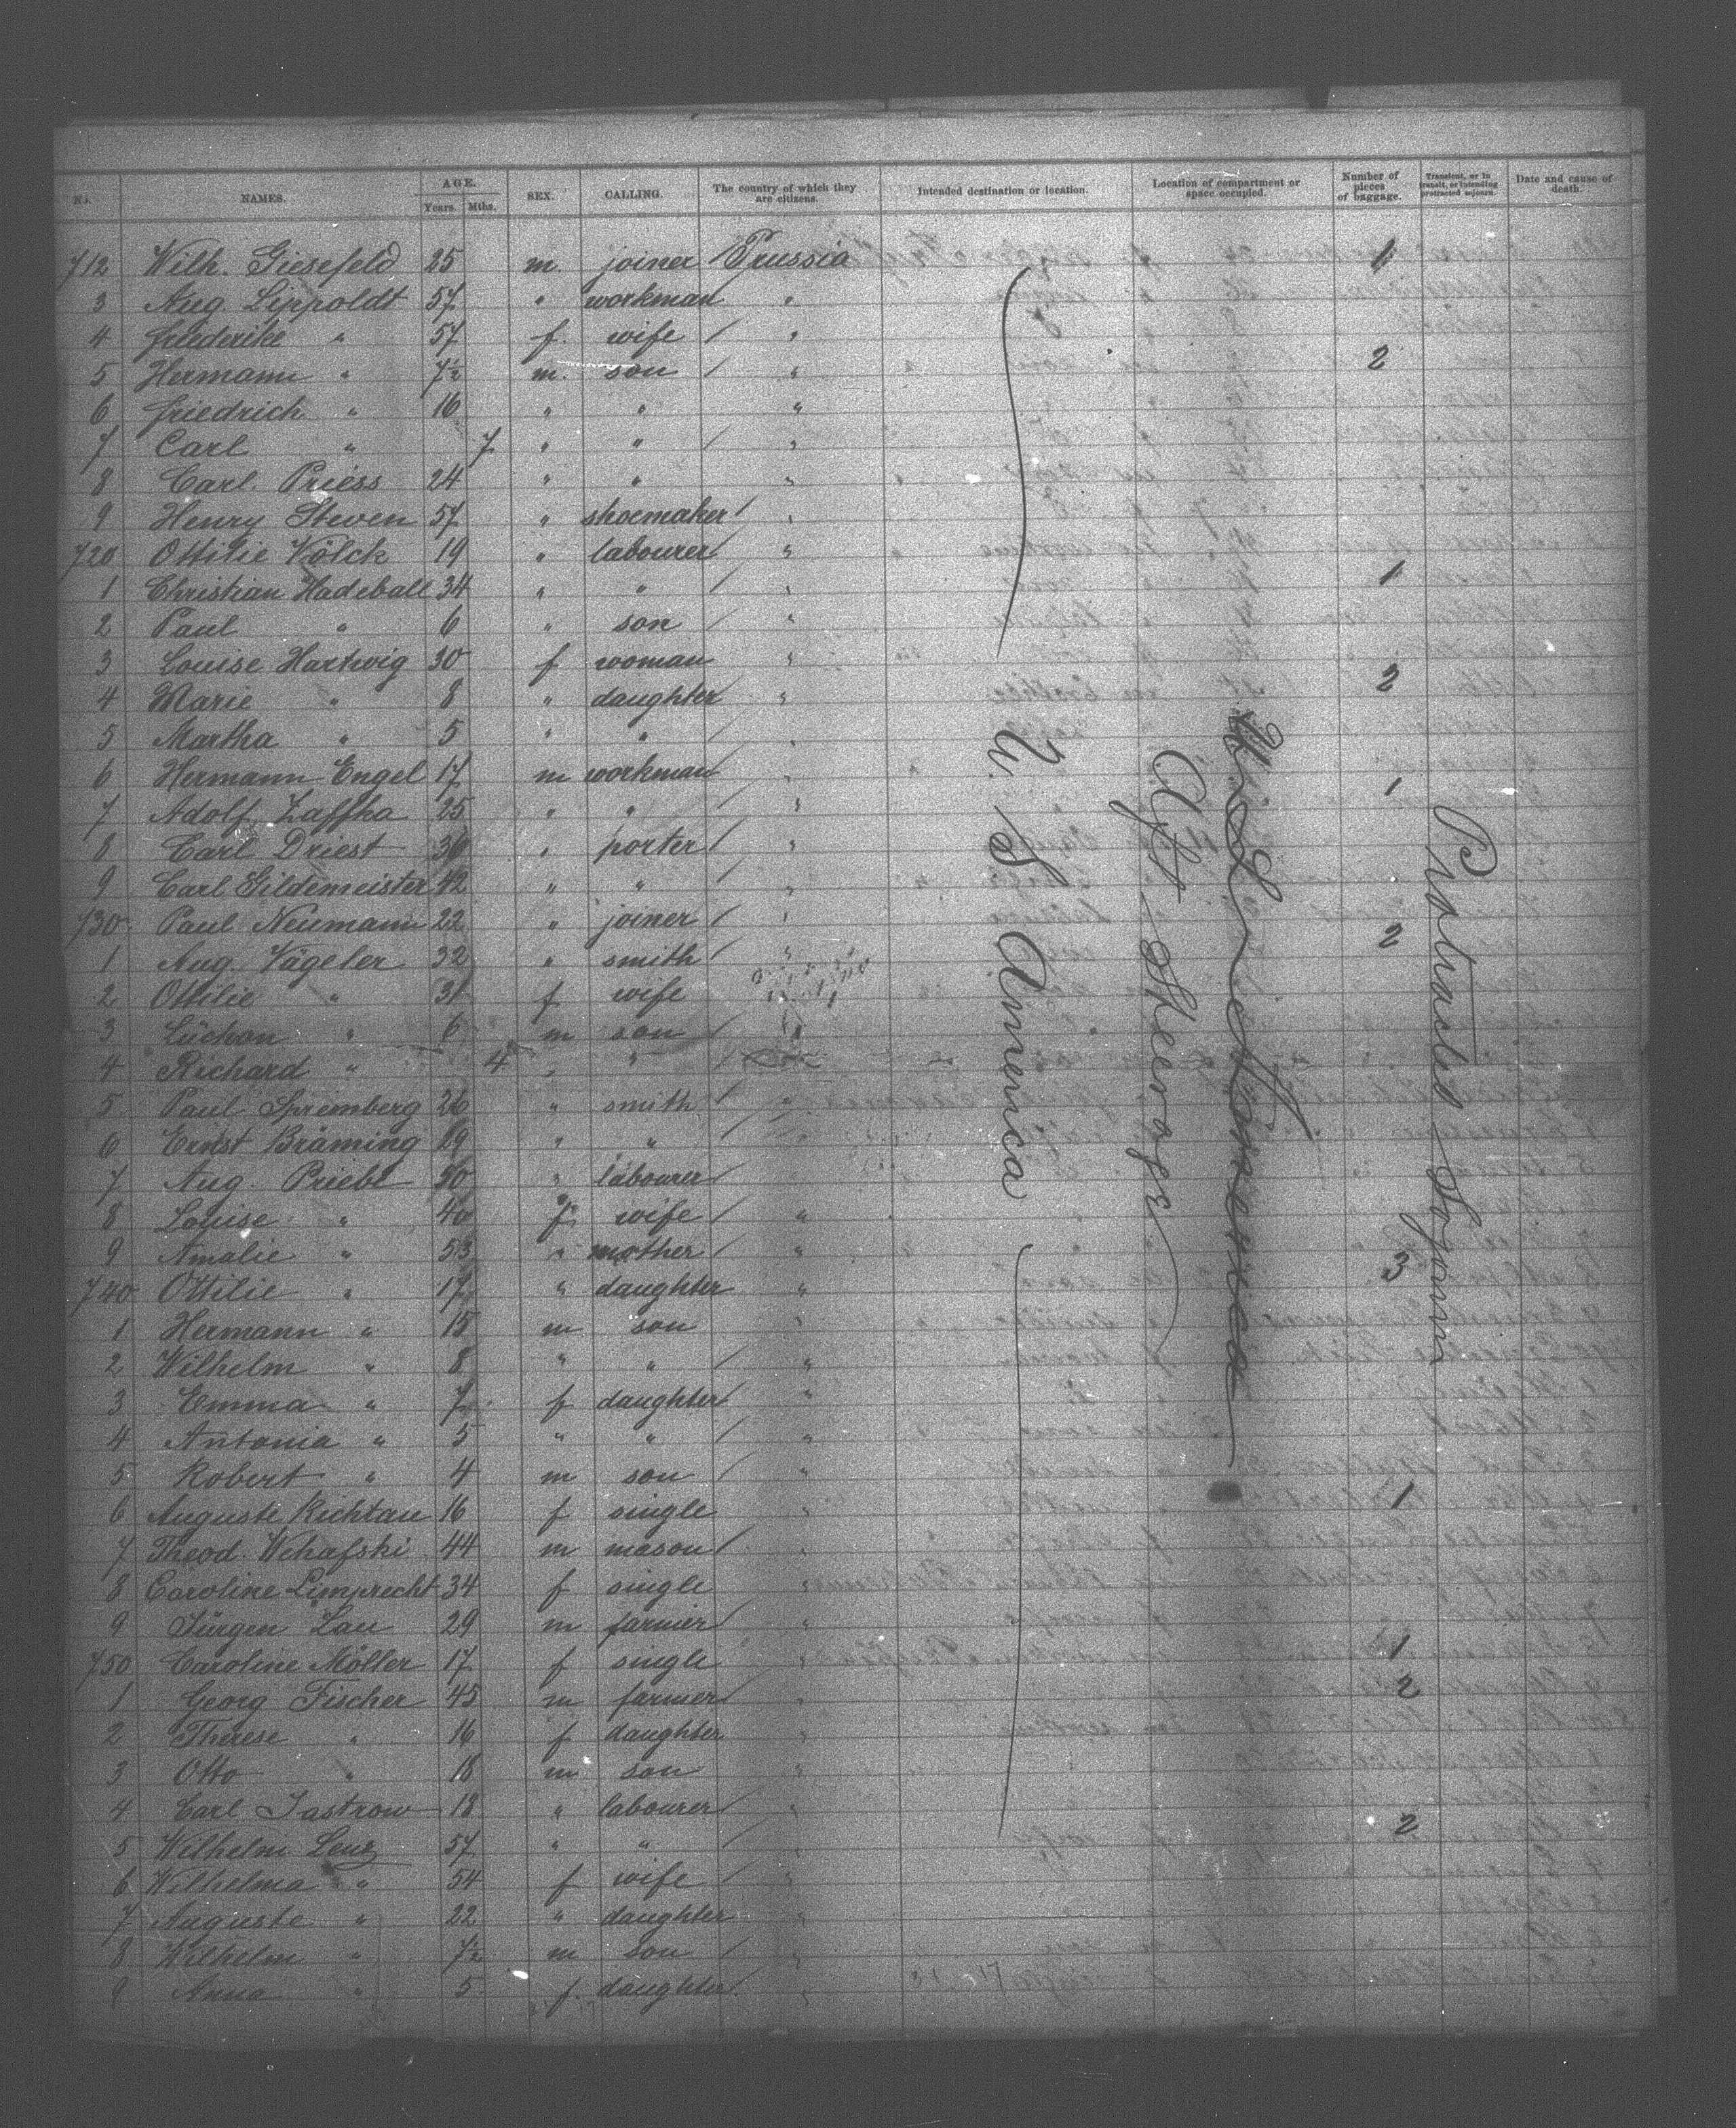 No. NAMES. AGE. Years. Mths. SEX. CALLING. The country of which they are citizens. Intended destination or location. Location of compartment or space occupied. Number of pieces of baggage. Transient, or in transit, or intending protracted sojourn. Date and cause of death.
712 Wilh. Giesefeld 25 m. joiner Prussia 1
3 Aug. Lippoldt 57 " workman "
4 Friederike " 57 f. wife / "
5 Hermann " 7½ m. son / " 2
6 Friedrich " 16 " " "
7 Carl " 7 " " / "
8 Carl Priess 24 " " "
9 Henry Steven 57 " shoemaker / "
720 Ottilie Völck 19 " labourer / "
1 Christian Hadeball 34 " " / " 1
2 Paul " 6 " son / "
3 Louise Hartwig 30 f woman "
4 Marie " 8 " daughter " 2
5 Martha " 5 " " "
6 Hermann Engel 17 m workman "
7 Adolf Zaffka 25 " " " 1
8 Carl Driest 36 " porter / "
9 Carl Gildemeister 42 " " "
730 Paul Neumann 22 " joiner / "
1 Aug. Vägeler 32 " smith / " 2
2 Ottilie " 31 f wife
3 " 6 m son / "
4 Richard " 4 " " /
5 Paul Spremberg 26 " smith / "
6 Ernst Bräming 29 " " /
7 Aug. Priebe 50 " labourer /
8 Louise " 40 f. wife / "
9 Amalie " 53 " mother / "
740 Ottilie " 17 " daughter " 3
1 Hermann " 15 m son "
2 Wilhelm " 8 " " / "
3 Emma " 7 f daughter / "
4 Antonia " 5 " " "
5 Robert " 4 m son / "
6 Auguste Richtau 16 f single " 1
7 Theod. Wchafski 44 m mason / "
8 Caroline Limprecht 34 f single "
9 Jürgen Lau 29 m farmer / "
750 Caroline Möller 17 f single " 1
1 Georg Fischer 45 m farmer / " 2
2 Therese " 16 f daughter "
3 Otto " 18 m son "
4 Carl Jastrow 18 " labourer / "
5 Wilhelm Lenz 57 " " / " 2
6 Wilhelma " 54 f wife / "
7 Auguste " 22 " daughter "
8 Wilhelm " 7½ m son / "
9 Anna " 5 f. daughter "
U. S. America
Aft Steerage
Protracted Sojourn